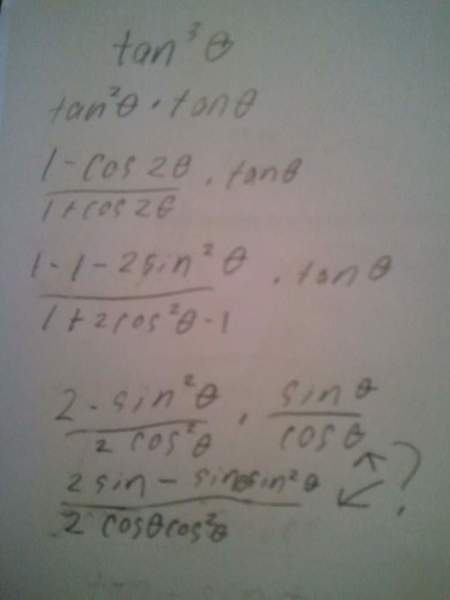 tan³θ
tan²θ · tanθ
1 - cos 2θ / 1 + cos 2θ · tanθ
1 - 1 - 2sin²θ / 1 + 2cos²θ - 1 · tanθ
2 - sin²θ / 2 cos²θ · sinθ / cosθ
2 sin - sinθsin²θ / 2 cosθcos²θ ?